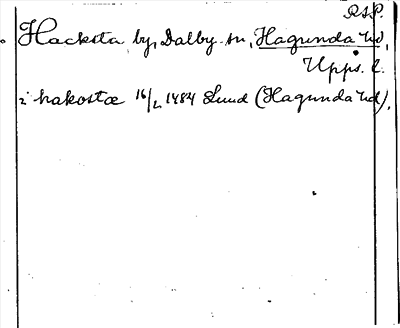 R.S.P.
Hacksta by, Dalby sn, Hagunda hd,
Upps. l.
i hakostæ 16/2 1484 Lund (Hagunda hd),